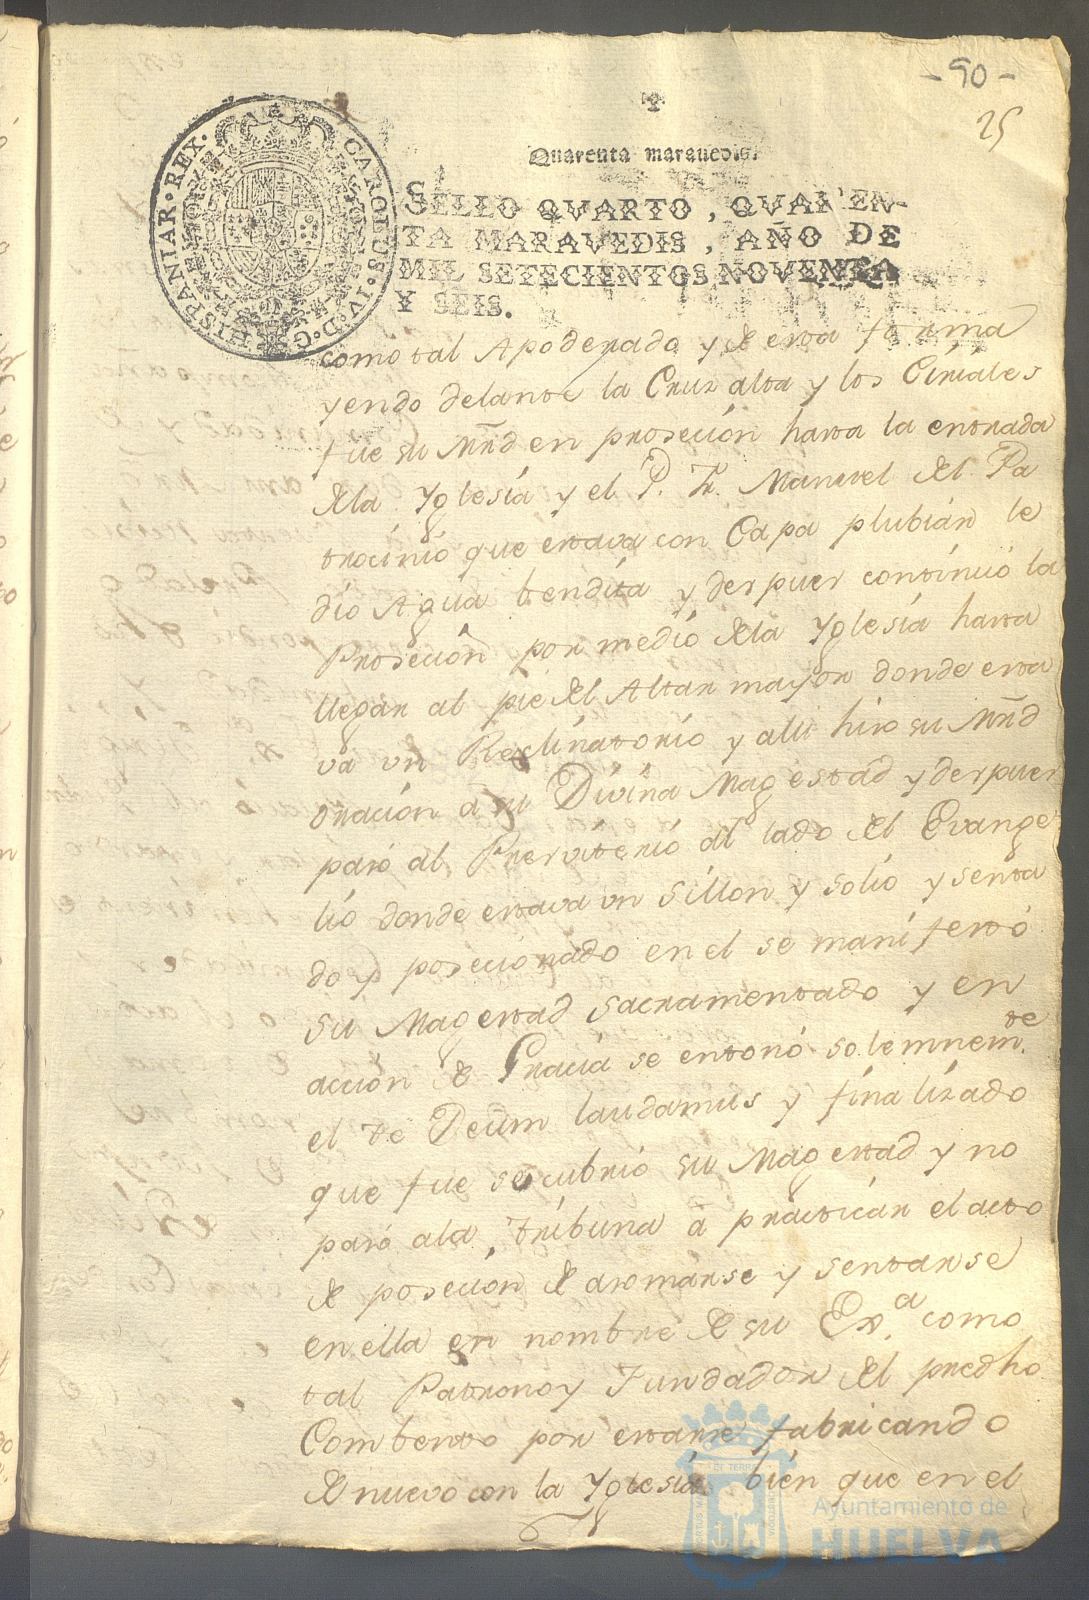 - 90 -
25
Quarenta maravedis.
SELLO QVARTO, QVAREN-
TA MARAVEDIS, AÑO DE
MIL SETECIENTOS NOVENTA
Y SEIS.
CAROLUS · IV · D · G · HISPANIAR · REX ·
como tal Apoderado y de esta forma
yendo delante la Cruz alta y los Ciriales
fue su Mrd en prosecion hasta la entrada
de la Yglesia y el P. Fr. Manuel del Pa
trocinio que estava con Capa plubial le
dio Agua bendita y despues continuó la
Prosecion por medio de la Yglesia hasta
llegar al pie del Altar mayor donde esta
va un Reclinatorio y alli hizo su Mrd
oracion a su Divina Magestad y despues
pasó al Presviterio al lado del Evange
lio donde estava un Sillon y solio y senta
do y posecionado en el se manifestó
su Magestad Sacramentado y en
accion de Gracia se entonó solemnem.te
el te Deum laudamus y finalizado
que fue se cubrio su Magestad y no
pasó a la tribuna a practicar el acto
de posecion de asomarse y sentarse
en ella en nombre de su Ex.a como
tal Patrono y Fundador del predho
Combento por estarse fabricando
de nuevo con la Yglesia bien que en el
Ayuntamiento de
HUELVA